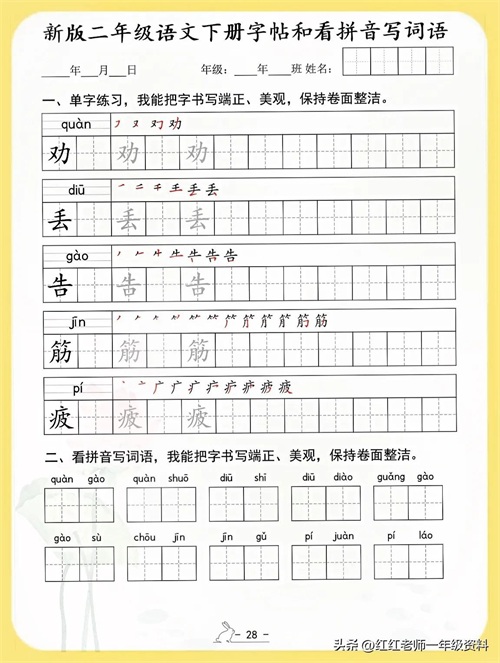 新版二年级语文下册字帖和看拼音写词语
____年___月___日 年级：____年____班 姓名：
一、单字练习，我能把字书写端正、美观，保持卷面整洁。
quàn
劝 劝 劝
diū
丢 丢 丢
gào
告 告 告
jīn
筋 筋 筋
pí
疲 疲 疲
二、看拼音写词语，我能把字书写端正、美观，保持卷面整洁。
quàn gào quàn shuō diū shī diū diào guǎng gào
gào sù chōu jīn jīn gǔ pí juàn pí láo
- 28 -
头条@红红老师一年级资料